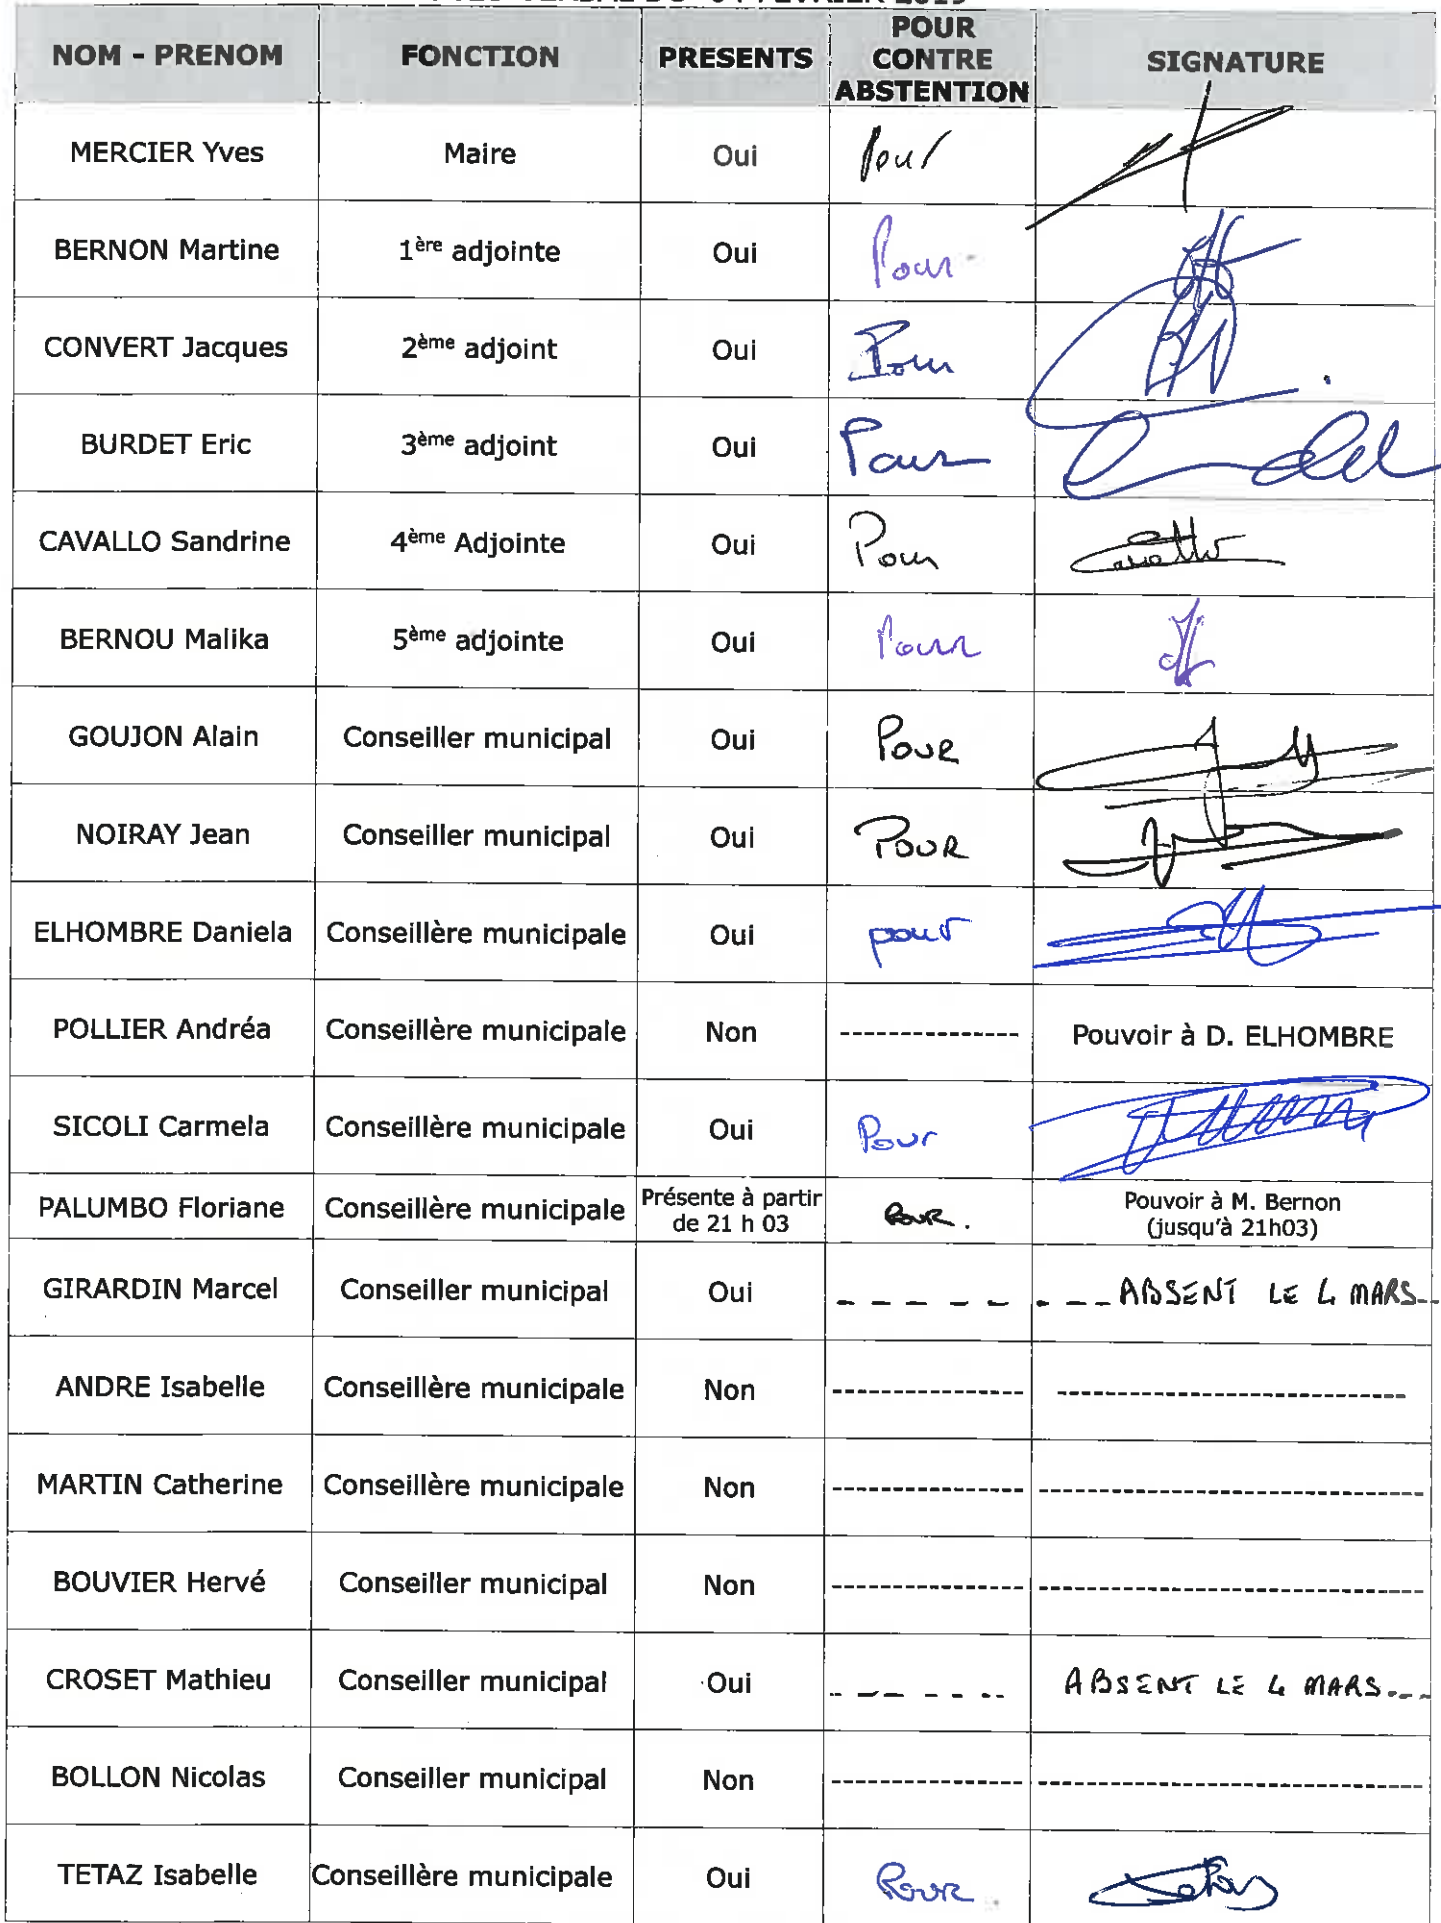 NOM - PRENOM FONCTION PRESENTS POUR CONTRE ABSTENTION SIGNATURE
MERCIER Yves Maire Oui Pour
BERNON Martine 1ère adjointe Oui Pour
CONVERT Jacques 2ème adjoint Oui Pour
BURDET Eric 3ème adjoint Oui Pour
CAVALLO Sandrine 4ème Adjointe Oui Pour
BERNOU Malika 5ème adjointe Oui Pour
GOUJON Alain Conseiller municipal Oui POUR
NOIRAY Jean Conseiller municipal Oui POUR
ELHOMBRE Daniela Conseillère municipale Oui pour
POLLIER Andréa Conseillère municipale Non ---------------- Pouvoir à D. ELHOMBRE
SICOLI Carmela Conseillère municipale Oui Pour
PALUMBO Floriane Conseillère municipale Présente à partir de 21 h 03 POUR. Pouvoir à M. Bernon (jusqu'à 21h03)
GIRARDIN Marcel Conseiller municipal Oui - - - - - - - - ABSENT LE 4 MARS--
ANDRE Isabelle Conseillère municipale Non ----------------- ------------------------------
MARTIN Catherine Conseillère municipale Non ----------------- ---------------------------------
BOUVIER Hervé Conseiller municipal Non ----------------- ---------------------------------
CROSET Mathieu Conseiller municipal Oui - - - - - - ABSENT LE 4 MARS---
BOLLON Nicolas Conseiller municipal Non ----------------- ---------------------------------
TETAZ Isabelle Conseillère municipale Oui POUR